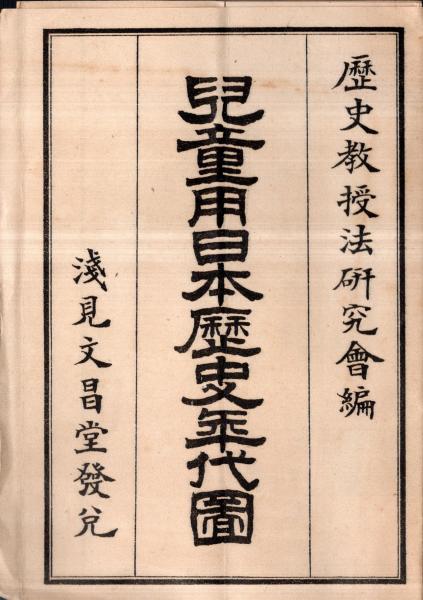 歷史教授法硏究會編
兒童用日本歷史年代圖
淺見文昌堂發兌